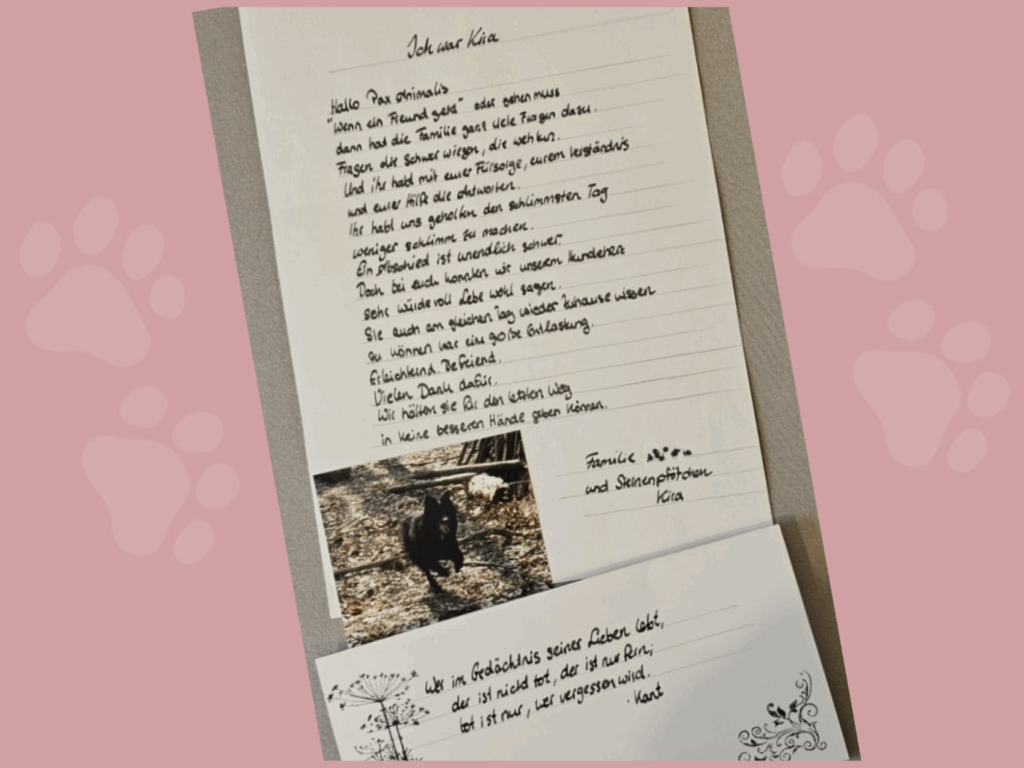 Ich war Kira
Hallo Pax Animalis
"Wenn ein Freund geht" oder gehen muss
dann hat die Familie ganz viele Fragen dazu.
Fragen die schwer wiegen, die weh tun.
Und ihr habt mit eurer Fürsorge, eurem Verständnis
und eurer Hilfe die Antworten.
Ihr habt uns geholfen den schlimmsten Tag
weniger schlimm zu machen.
Ein Abschied ist unendlich schwer.
Doch bei euch konnten wir unserem Hundeherz
sehr würdevoll Lebe wohl sagen.
Sie auch am gleichen Tag wieder Zuhause wissen
zu können war eine große Entlastung.
Erleichternd. Befreiend.
Vielen Dank dafür.
Wir hätten sie für den letzten Weg
in keine besseren Hände geben können.
Familie
und Sternenpfötchen
Kira
Wer im Gedächtnis seiner Lieben lebt,
der ist nicht tot, der ist nur Fern;
tot ist nur, wer vergessen wird.
· Kant